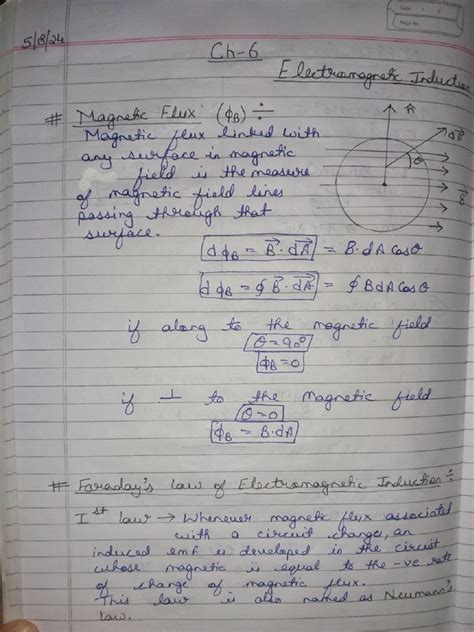 Date
Page No.
5/8/24
Ch-6
Electromagnetic Induction
# Magnetic Flux (ɸB) ÷
Magnetic flux linked with
any surface in magnetic
field is the measure
of magnetic field lines
passing through that
surface.
n̂
θ
B⃗
dɸB = B⃗·dA⃗ = B·dA cosθ
dɸB = ∮B⃗·dA⃗ = ∮BdA cosθ
if along to the magnetic field
θ=90°
ɸB=0
if ⊥ to the Magnetic field
θ=0
ɸB = B·dA
# Faraday's law of Electromagnetic Induction ÷
Ist law → Whenever magnetic flux associated
with a circuit changes, an
induced emf is developed in the circuit
whose magnetic is equal to the -ve rate
of change of magnetic flux.
This law is also named as Neumann's
law.